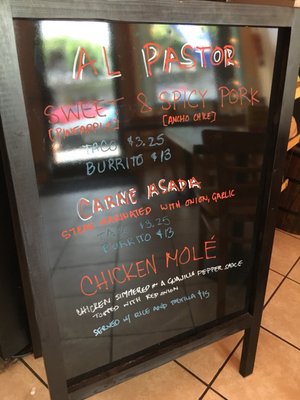 AL PASTOR
SWEET & SPICY PORK
[PINEAPPLE] [ANCHO CHILE]
TACO $3.25
BURRITO $13
CARNÉ ASADA
STEAK MARINATED WITH ONION, GARLIC
TACO $3.25
BURRITO $13
CHICKEN MOLÉ
CHICKEN SIMMERED IN A GUAJILLA PEPPER SAUCE
TOPPED WITH RED ONION
SERVED W/ RICE AND TORTILLA $15